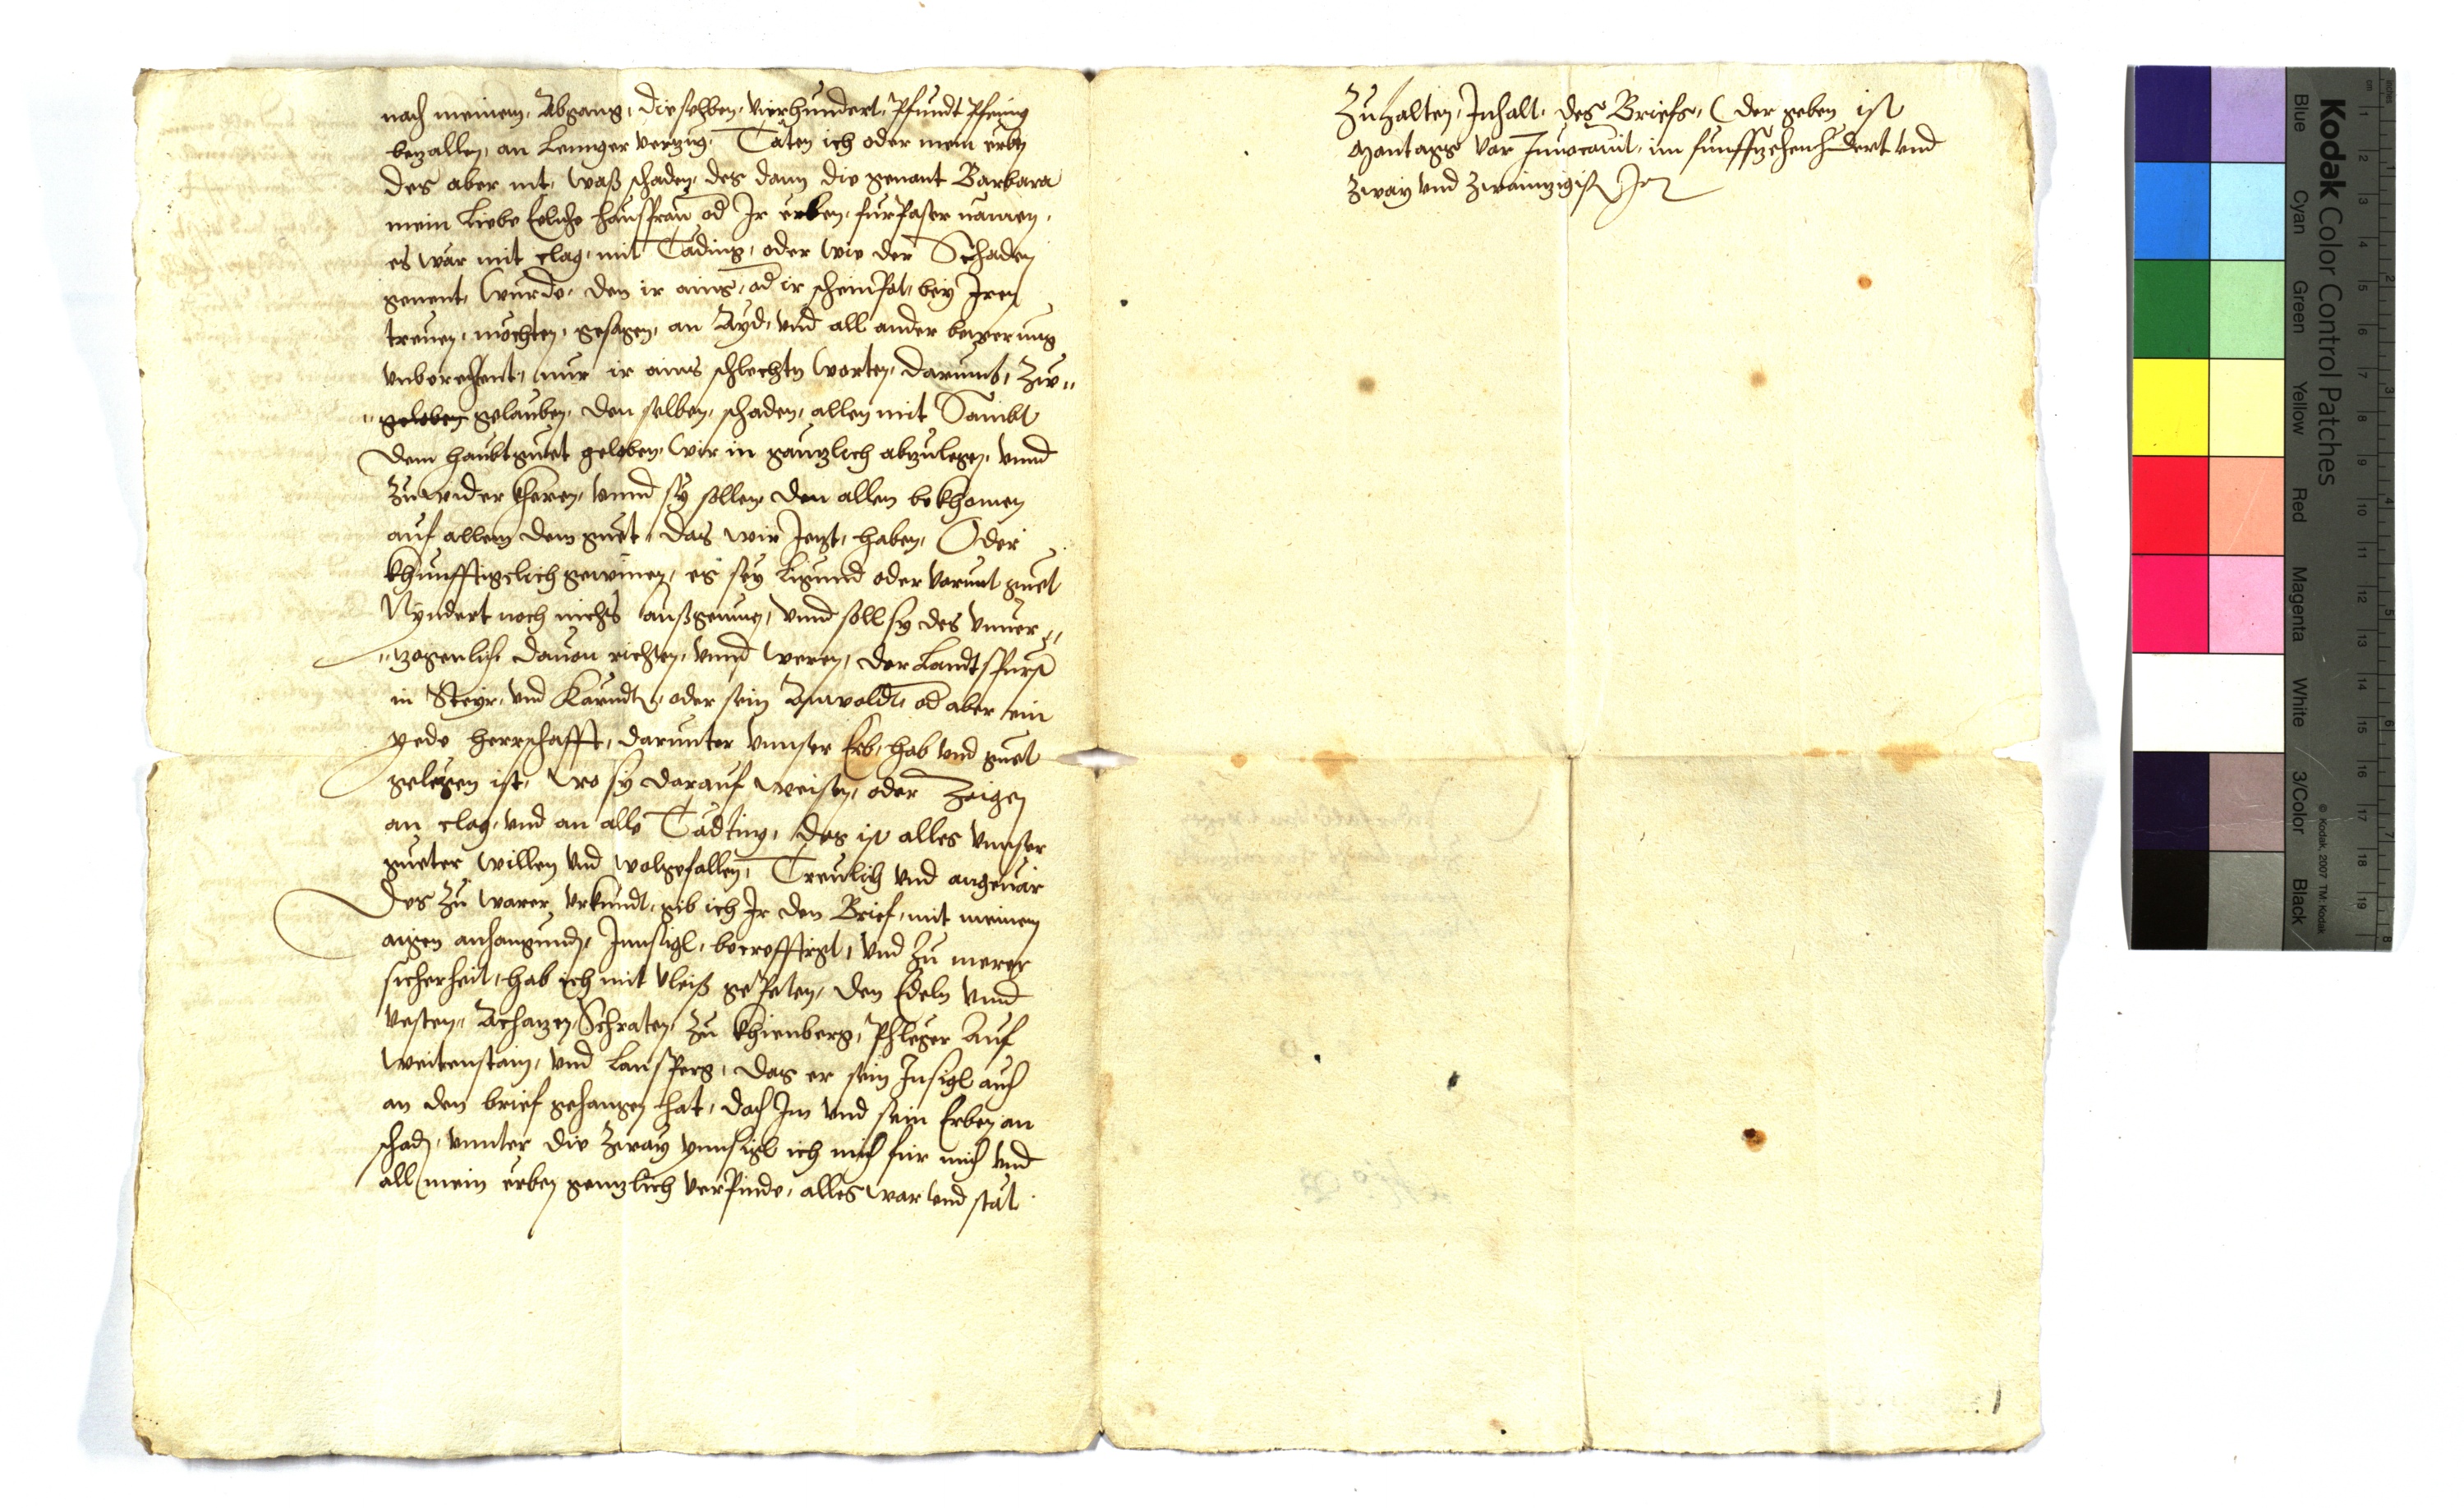 nach meinem, Abgang, dieselben, vierhundert, Pfundt Pfening
bezallen, an lennger verzug, Täten ich oder mein erben
des aber nit, waß schaden, des dann die genant Barbara
mein liebe Eeliche hausfrau od Ir erben, furpaser namen,
es wär mit clag, mit Täding, oder wie der Schaden
genent, wurde, den ir ains, od ir scheinpot, bey Iren
treuen, möchten, gesagen, an Ayd, und all ander bewerung
unberechent, nur ir ains schlechten worten, darumb, zw
geloben gelauben, den selben, schaden, allen mit Sambt
dem haubtguet geloben, wir in gäntzlich abzulegen, unnd
zuwider kheren, unnd sy sollen den allen bekhomen
auf allem dem guet, das wir Jetzt, haben, Oder
khunfftigclich gewinnen, es sey ligund oder varunt guet
Nyndert noch nichts außgenumen, unnd soll sy des unver
zogenlich davon richten, unnd weren, der Landtsfurst
in Steyr, und Kärndten, oder sein Anwoldt, od aber ein
yede herrschafft, darunter unnser Erb, hab und guet
gelegen ist, wo sy darauf weisen, oder zaigen
an clag, und an alle Tädting, das ist alles unnser
gueter willen und wolgefallen, Treulich und angeuär
Des zu warer urkundt, gib ich Ir den Brief, mit meinem
aigen anhangunden, Innsigl, becrefftigt, und zu merer
sicherheit, hab ich mit vleiß gepeten, den Edeln unnd
vesten, Achatzen Schraten, zu Khienberg, Phleger Auf
Weitenstain, und Lansperg, das er sein Insigl auch
an den brief gehangen hat, doch Im und sein Erben an
schaden, unnter die zway ynnsigl ich mich für mich und
all mein erben genntzlich verpinde, alles war und stät
Zuhalten, Inhalt, des Briefs, (der geben ist
Montags vor Invocavit, im funffzehenhundert und
zway und zwaintzigisten Jar
Kodak Color Control Patches
Blue Cyan Green Yellow Red Magenta White 3/Color Black
© Kodak, 2007 TM: Kodak